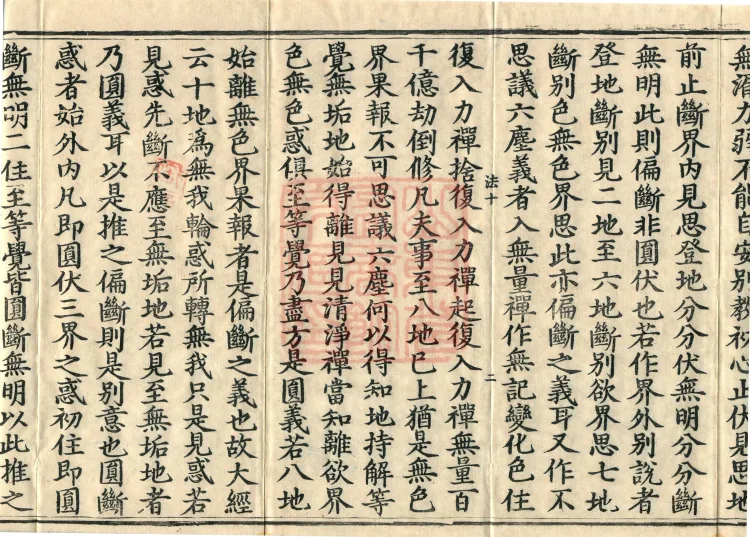 無
不能
安別教初心止伏見思地
前止斷界內見思登地分分伏無明分分斷
無明此則偏斷非圓伏也若作界外別說者
登地斷別見二地至六地斷別欲界思七地
斷別色無色界思此亦偏斷之義耳又作不
思議六塵義者入無量禪作無記變化色住
法十
二
復入力禪捨復入力禪起復入力禪無量百
千億劫倒修凡夫事至八地巳上猶是無色
界果報不可思議六塵何以得知地持解等
覺無垢地始得離見見清淨禪當知離欲界
色無色惑俱至等覺乃盡方是圓義若八地
始離無色界果報者是偏斷之義也故大經
云十地為無我輪惑所轉無我只是見惑若
見惑先斷不應至無垢地若見至無垢地者
乃圓義耳以是推之偏斷則是別意也圓斷
惑者始外內凡即圓伏三界之惑初住即圓
斷無明二住至等覺皆圓斷無明以此推之